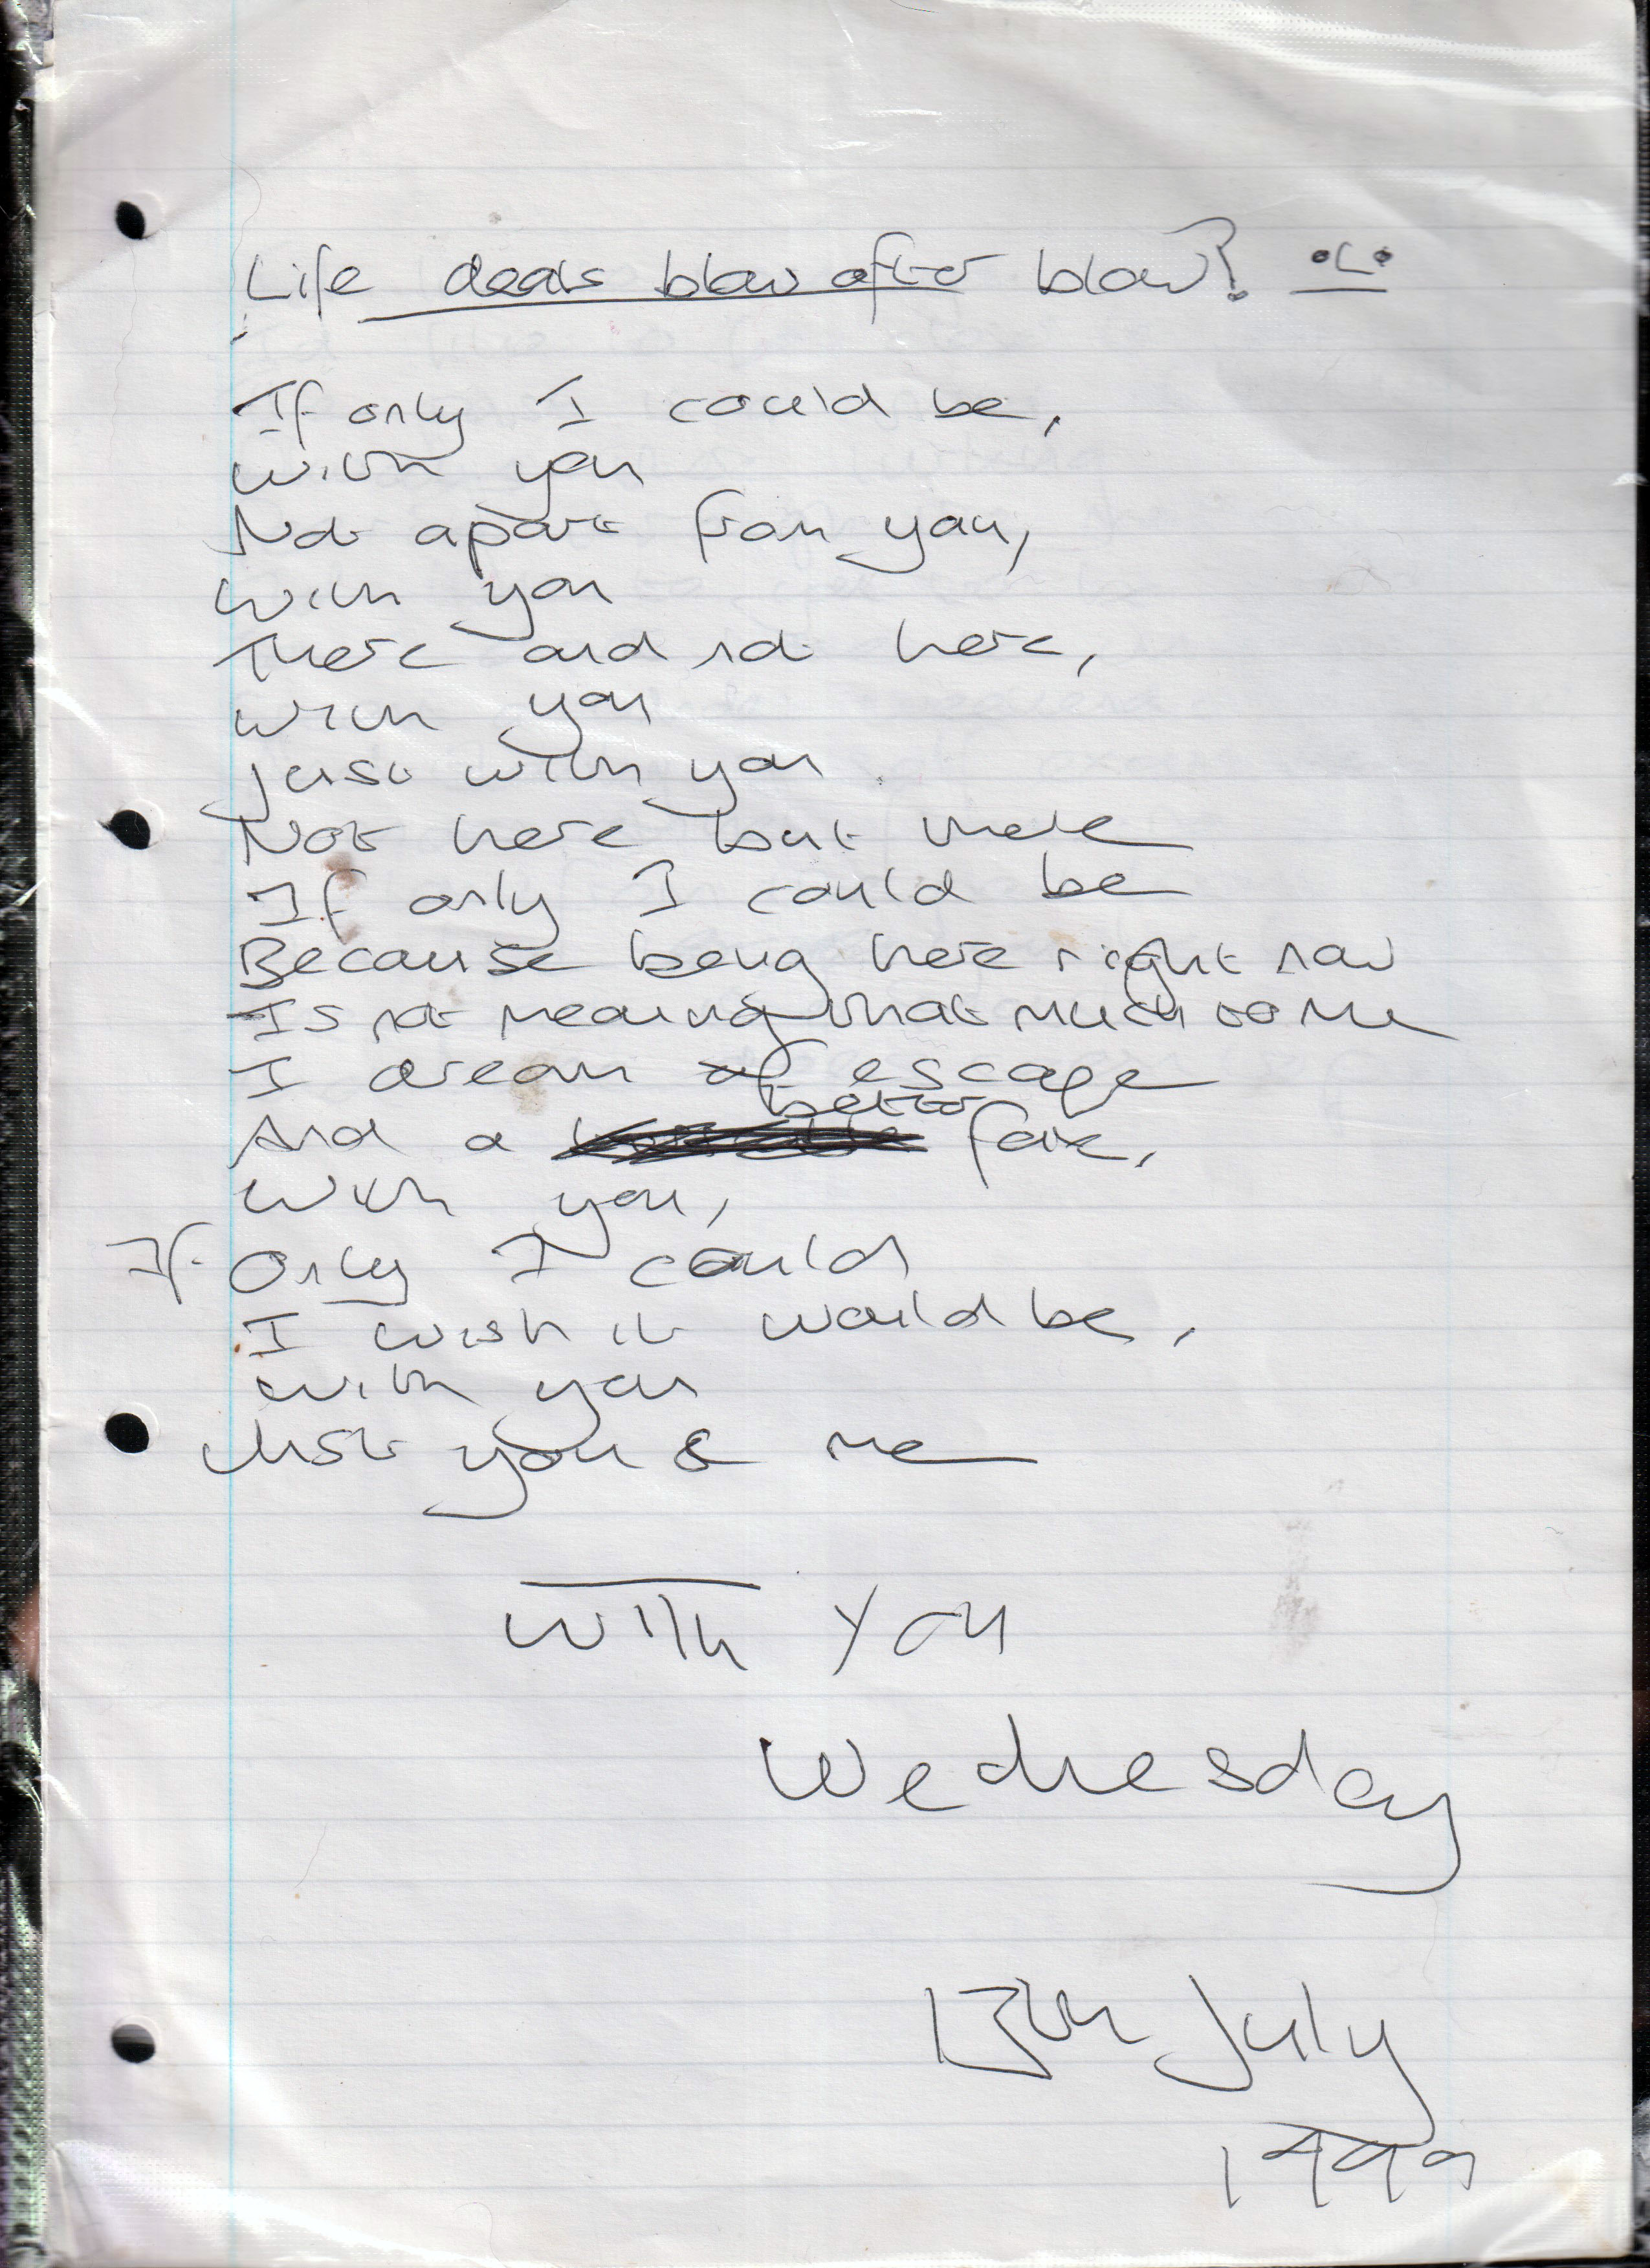 Life deals blow after blow?
If only I could be,
with you
Not apart from you,
with you
There and not here,
with you
Just with you
Not here but there
If only I could be
Because being here right now
Is not meaning that much to me
I dream of escape
better
And a fate,
with you,
If only I could
I wish it would be,
with you
Just you & me
with you
Wednesday
13th July
1999